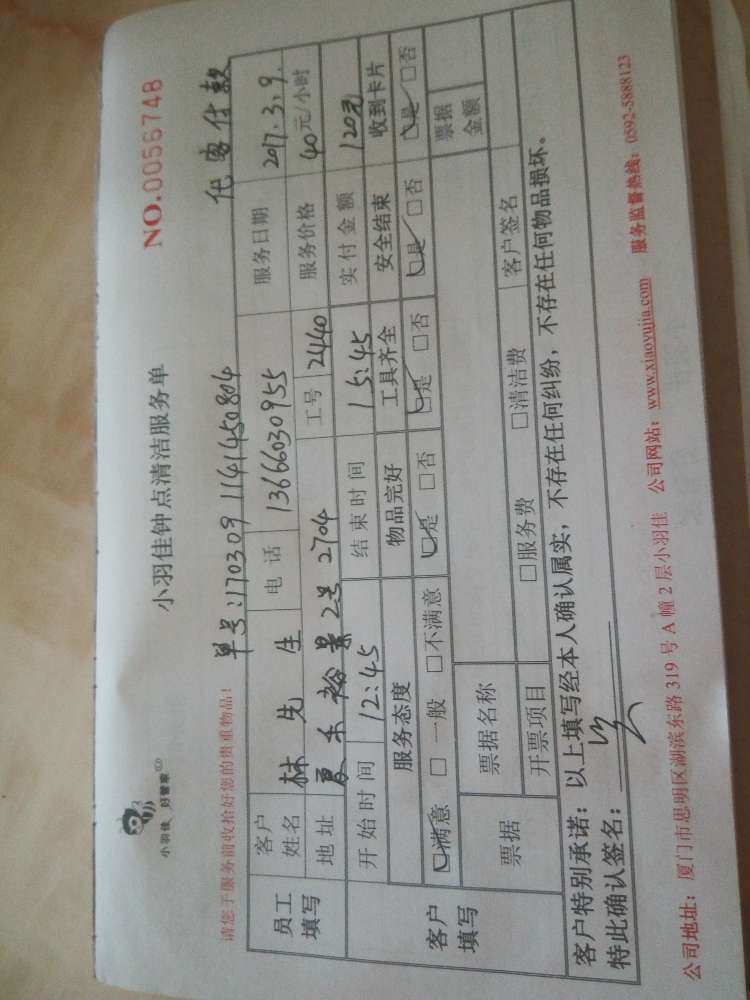 小羽佳 好管家
小羽佳钟点清洁服务单
NO.0056748
请您于服务前收拾好您的贵重物品!
单号:170309 1141450804
代客付款
员工填写
客户姓名 林先生 电话 13666030955 服务日期 2017.3.9.
地址 夏禾裕景2号2704 工号 2440 服务价格 40元/小时
开始时间 12:45 结束时间 15:45 实付金额 120元
客户填写
服务态度 物品完好 工具齐全 安全结束 收到卡片
□满意 □一般 □不满意 □是 □否 □是 □否 □是 □否 □是 □否
票据 票据名称 票据金额
开票项目 □服务费 □清洁费 客户签名
客户特别承诺:以上填写经本人确认属实,不存在任何纠纷,不存在任何物品损坏。
特此确认签名:
公司地址:厦门市思明区湖滨东路319号A幢2层小羽佳 公司网站:www.xiaoyujia.com 服务监督热线:0592-5888123